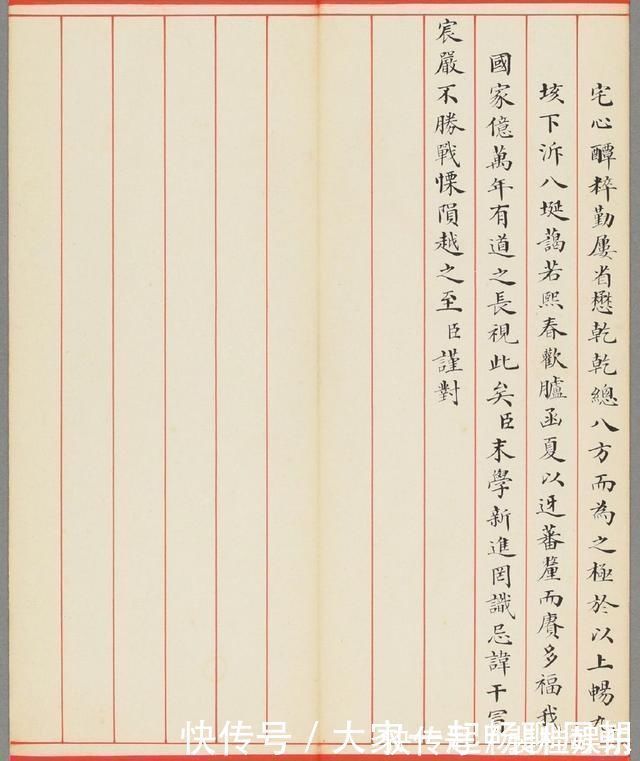 宅心醰粹勤屢省懋乾乾總八方而為之極於以上暢九
垓下泝八埏藹若熙春歡臚函夏以迓蕃釐而賡多福我
國家億萬年有道之長視此矣臣末學新進罔識忌諱干冒
宸嚴不勝戰慄隕越之至臣謹對
快传号／大家一起畅聊